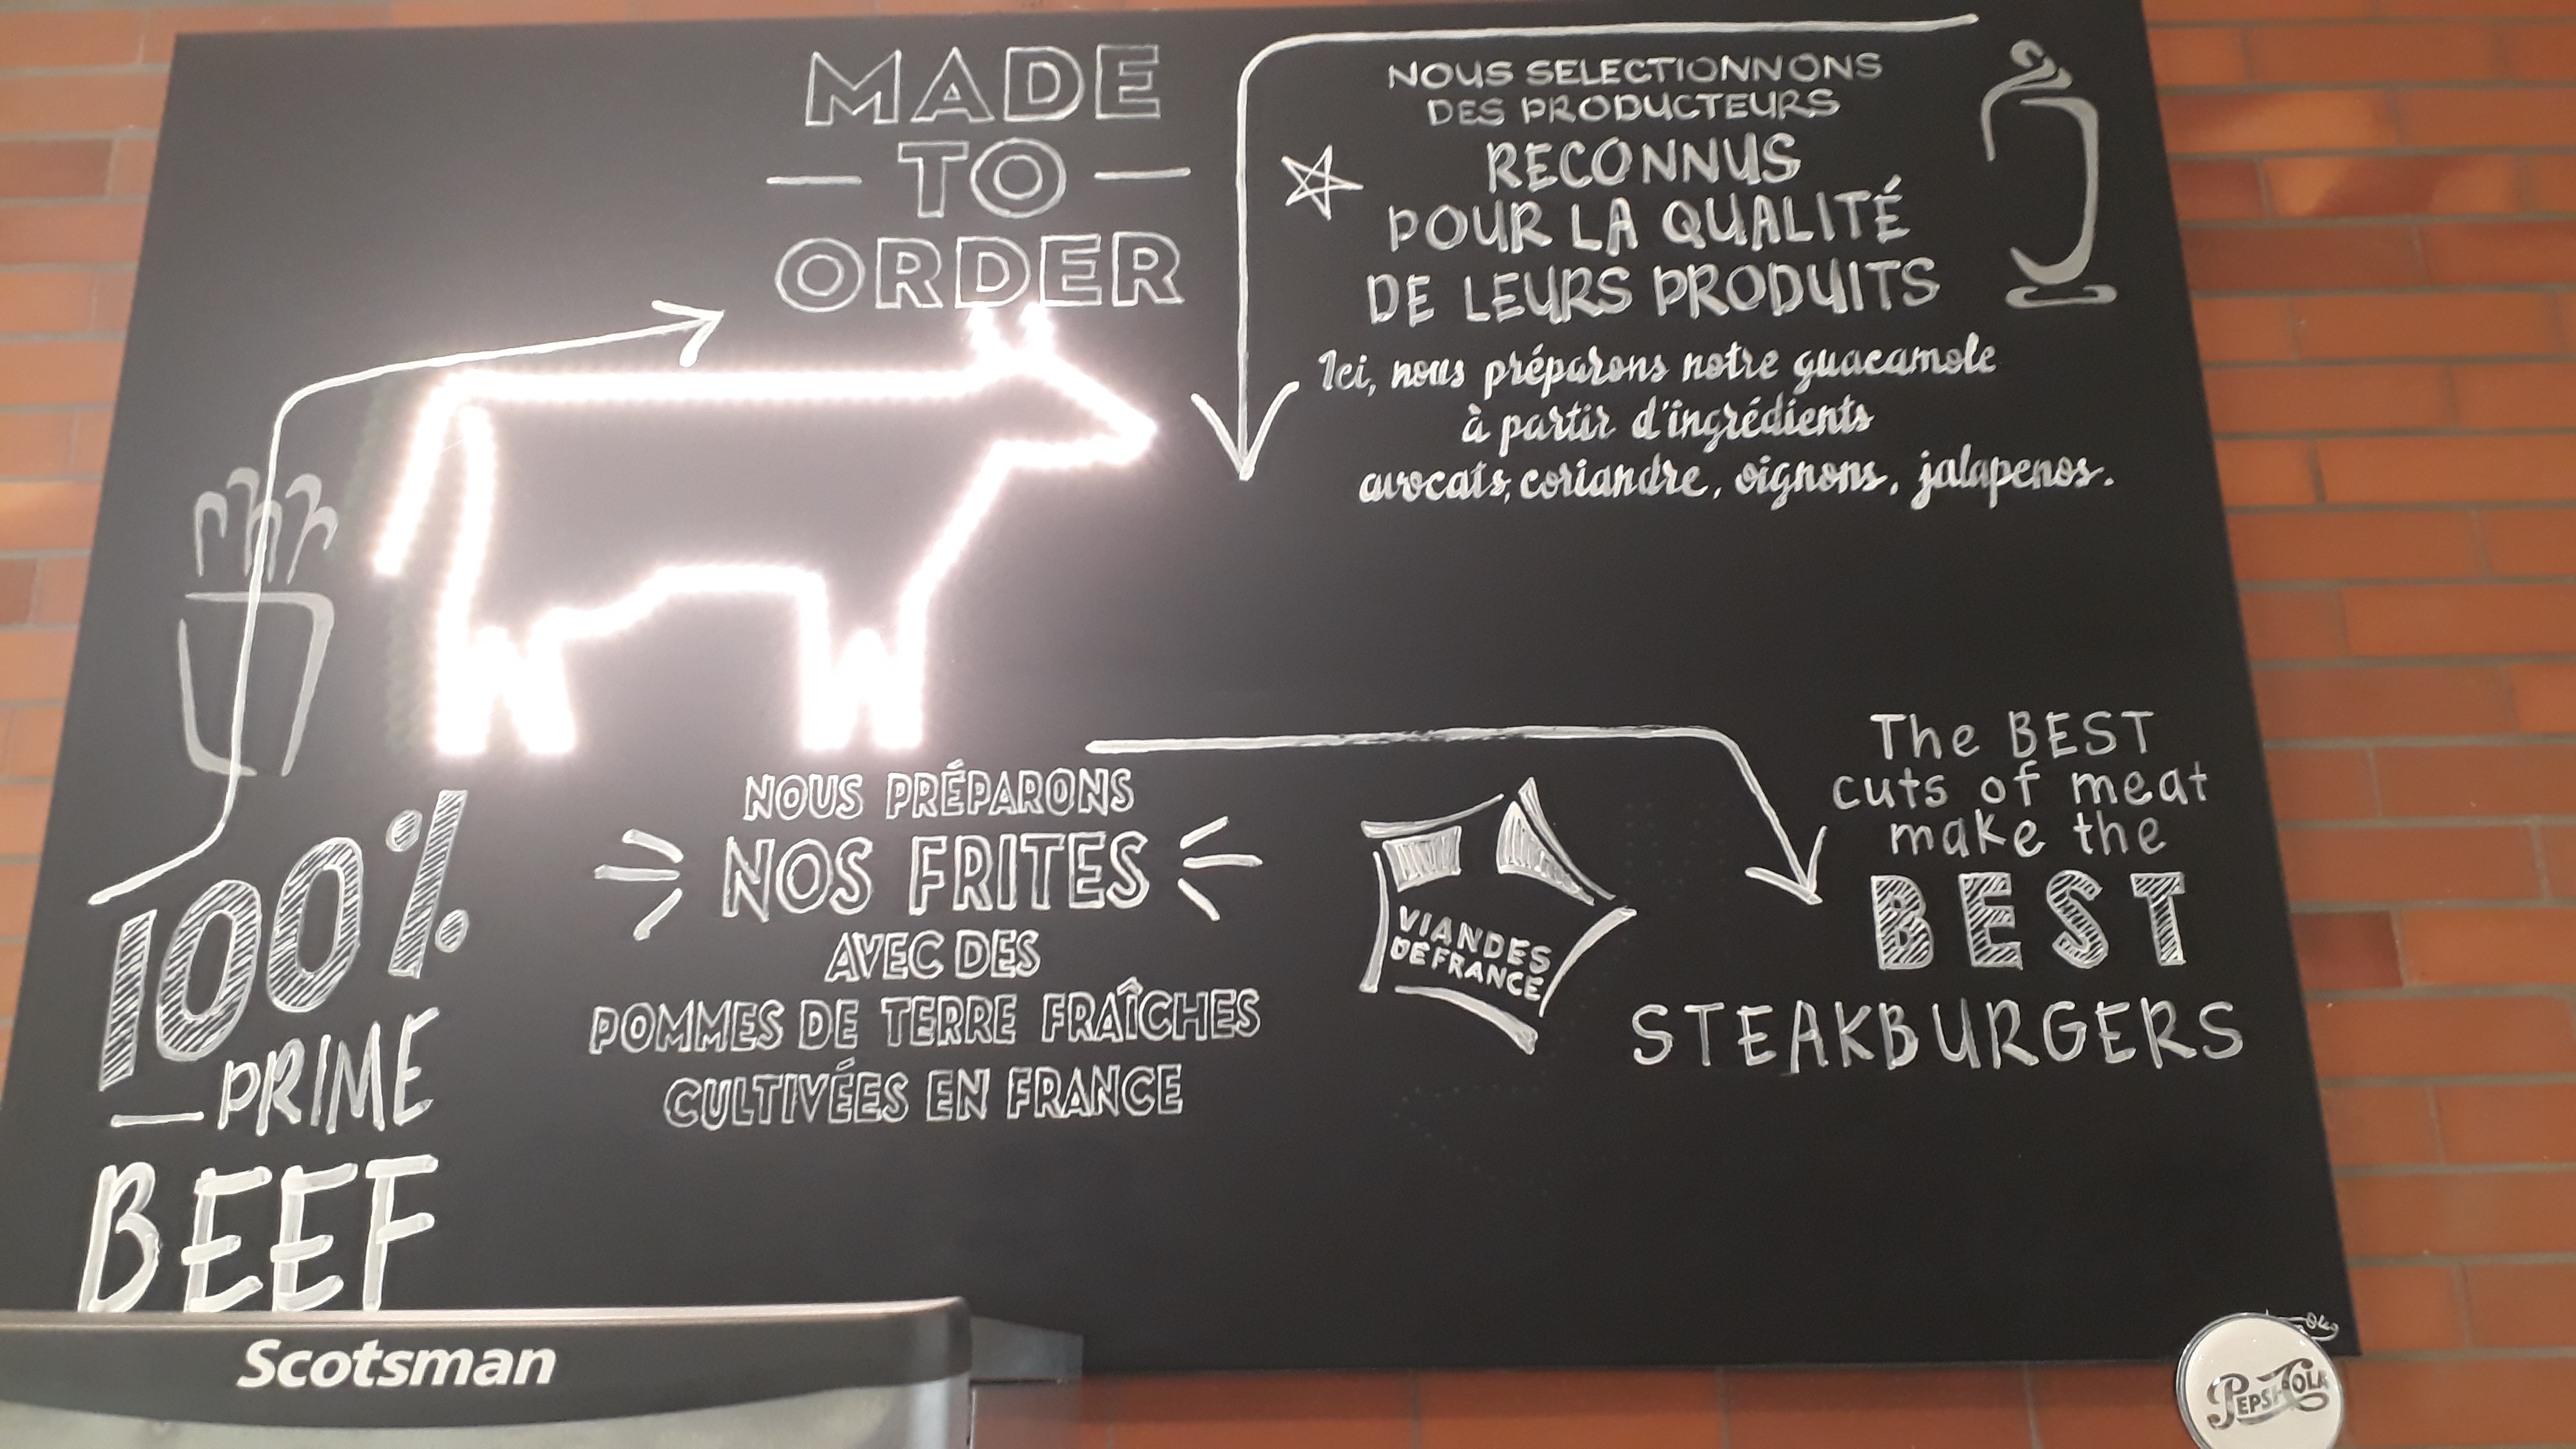 MADE
TO
ORDER
NOUS SELECTIONNONS
DES PRODUCTEURS
RECONNUS
POUR LA QUALITÉ
DE LEURS PRODUITS
Ici, nous préparons notre guacamole
à partir d'ingrédients
avocats, coriandre, oignons, jalapenos.
100%
PRIME
BEEF
NOUS PRÉPARONS
NOS FRITES
AVEC DES
POMMES DE TERRE FRAÎCHES
CULTIVÉES EN FRANCE
VIANDES
DE FRANCE
The BEST
cuts of meat
make the
BEST
STEAKBURGERS
Scotsman
PEPSI COLA